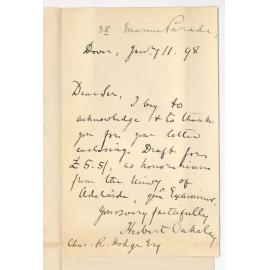 38 Marine Parade,
Dover, Jany 11. 98
Dear Sir, I beg to
acknowledge & to thank
you for your letter
enclosing Draft for
£5.5/, as honorarium
from the Univy of
Adelaide, quâ Examiner.
Yours very faithfully
Herbert Oakeley
Chas. R. Hodge Esq